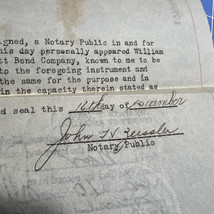 igned, a Notary Public in and for
his day personally appeared William
tt Bond Company, known to me to be
to the foregoing instrument and
the same for the purpose and in
in the capacity therein stated as
d seal this 16th day of December
John H Zeissler
Notary Public